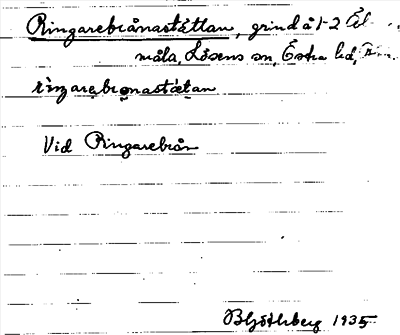 Ringarebrånastättan, grind å 1-2
måla, Lösens sn, Östra hd,
ringarebrånastätan
Vid Ringarebrån
B Göthberg 1935